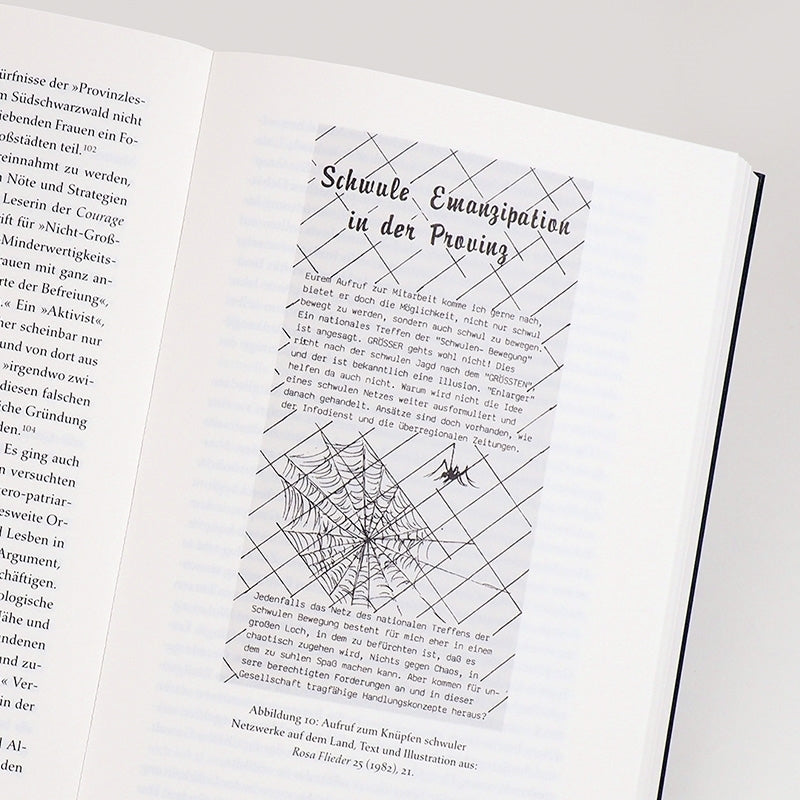 ürfnisse der »Provinzles-
m Südschwarzwald nicht
iebenden Frauen ein Fo-
oßstädten teil.¹⁰²
reinnahmt zu werden,
n Nöte und Strategien
Leserin der Courage
rift für »Nicht-Groß-
-Minderwertigkeits-
rauen mit ganz an-
rte der Befreiung«,
.« Ein »Aktivist«,
ner scheinbar nur
und von dort aus
»irgendwo zwi-
diesen falschen
liche Gründung
den.¹⁰⁴
Es ging auch
n versuchten
ero-patriar-
esweite Or-
d Lesben in
Argument,
chäftigen.
ologische
Nähe und
undenen
und zu-
« Ver-
in der
d Al-
den
Schwule Emanzipation
in der Provinz
Eurem Aufruf zur Mitarbeit komme ich gerne nach,
bietet er doch die Möglichkeit, nicht nur schwul
bewegt zu werden, sondern auch schwul zu bewegen.
Ein nationales Treffen der "Schwulen- Bewegung"
ist angesagt. GRÖSSER gehts wohl nicht! Dies
richt nach der schwulen Jagd nach dem "GRÖSSTEN",
und der ist bekanntlich eine Illusion. "Enlarger"
helfen da auch nicht. Warum wird nicht die Idee
eines schwulen Netzes weiter ausformuliert und
danach gehandelt. Ansätze sind doch vorhanden, wie
der Infodienst und die überregionalen Zeitungen.
Jedenfalls das Netz des nationalen Treffens der
Schwulen Bewegung besteht für mich eher in einem
großen Loch, in dem zu befürchten ist, daß es
chaotisch zugehen wird, Nichts gegen Chaos, in
dem zu suhlen Spaß machen kann. Aber kommen für un-
sere berechtigten Forderungen an und in dieser
Gesellschaft tragfähige Handlungskonzepte heraus?
Abbildung 10: Aufruf zum Knüpfen schwuler
Netzwerke auf dem Land, Text und Illustration aus:
Rosa Flieder 25 (1982), 21.